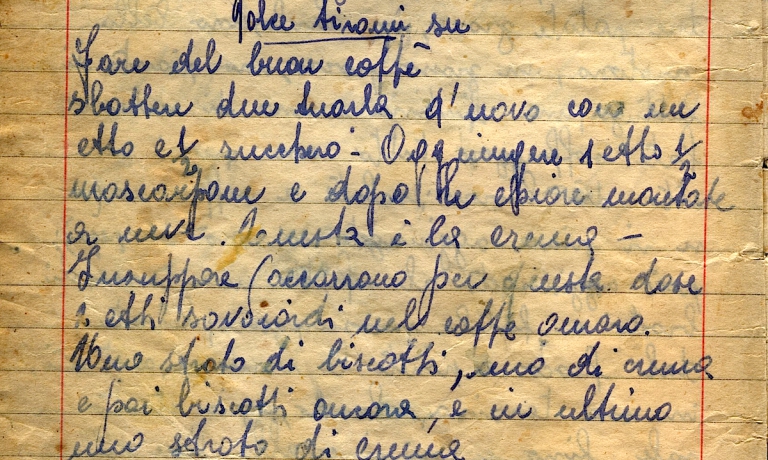 Dolce tirami su
Fare del buon caffè
sbattere due tuorla d'uovo con un
etto e 1/2 zucchero - Aggiungere 1 etto 1/2
mascarpone e dopo le chiare montate
a neve. Questa è la crema -
Inzuppare (occorrono per questa dose
2 etti savoiardi nel caffè amaro.
Uno strato di biscotti, uno di crema
e poi biscotti ancora, e in ultimo
uno strato di crema